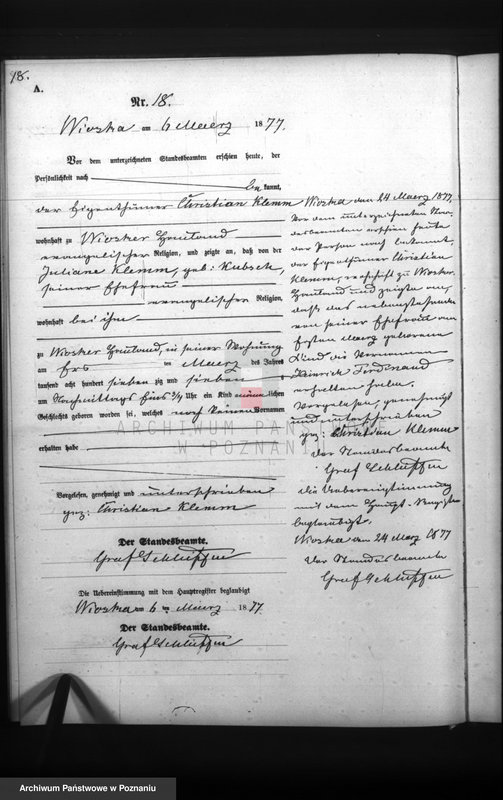 18.
A.
Nr. 18.
Wioska am 6 Maerz 1877.
Vor dem unterzeichneten Standesbeamten erschien heute, der
Persönlichkeit nach
bekannt,
der Eigenthümer Christian Klemm
wohnhaft zu Wiosker Hauland
evangelischer Religion, und zeigte an, daß von der
Juliane Klemm, geb: Kubsch,
seiner Ehefrau
evangelischer Religion,
wohnhaft bei ihm
zu Wiosker Hauland, in seiner Wohnung
am ten Maerz des Jahres
tausend acht hundert sieben zig und sieben
am Nachmittags Eins Uhr ein Kind männlichen
Geschlechts geboren worden sei, welches noch keinen Vornamen
erhalten habe
Vorgelesen, genehmigt und unterschrieben
gez: Christian Klemm
Der Standesbeamte.
Graf Schlieffen
Die Uebereinstimmung mit dem Hauptregister beglaubigt
Wioska am 6 ten Maerz 1877.
Der Standesbeamte.
Graf Schlieffen
Wioska den 24 Maerz 1877.
Vor dem unterzeichneten Stan-
desbeamten erschien heute
der Person nach bekannt,
der Eigenthümer Christian
Klemm, wohnhaft zu Wiosker
Hauland und zeigte an,
daß das nebenstehende
von seiner Ehefrau am
Ersten Maerz geborene
Kind die Vornamen
Heinrich Ferdinand
erhalten habe.
Vorgelesen, genehmigt
und unterschrieben
gez: Christian Klemm
Der Standesbeamte
Graf Schlieffen
Die Uebereinstimmung
mit dem Haupt-Register
beglaubigt.
Wioska am 24 Maerz 1877
Der Standesbeamte
Graf Schlieffen
ARCHIWUM PAŃSTWOWE
W POZNANIU
Archiwum Państwowe w Poznaniu